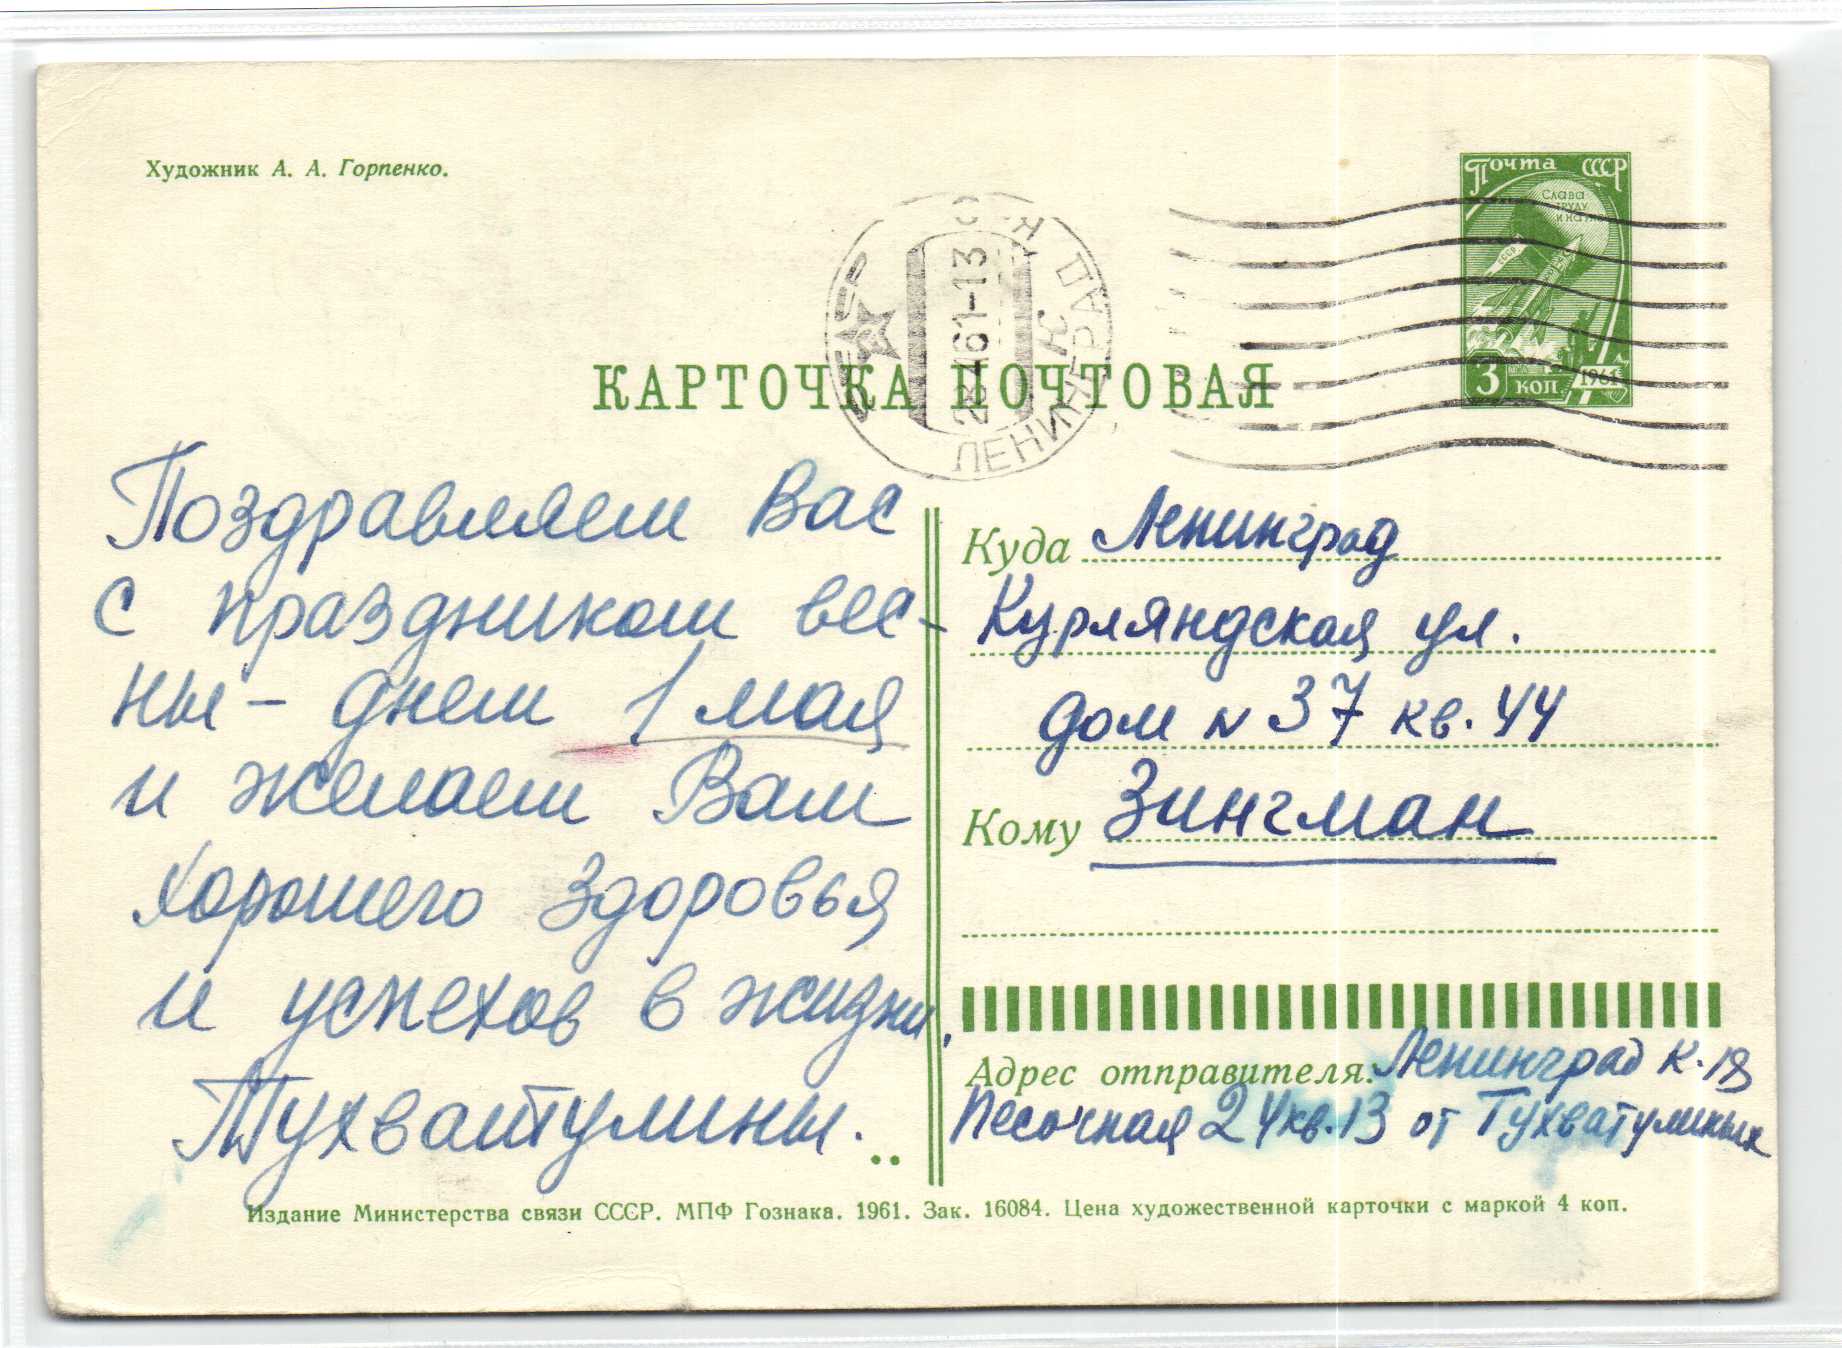 Художник А. А. Горпенко.
Почта СССР
Слава
труду
и науке
3 коп
1961
28461-13
ЛЕНИНГРАД
КАРТОЧКА ПОЧТОВАЯ
Поздравляем Вас
с праздником вес-
ны - днем 1 мая
и желаем Вам
хорошего здоровья
и успехов в жизни.
Тухватулины.
Куда Ленинград
Курляндская ул.
дом N 37 кв. 44
Кому Зингман
Адрес отправителя: Ленинград К-18
Песочная 24 кв. 13 от Тухватулиных
Издание Министерства связи СССР. МПФ Гознака. 1961. Зак. 16084. Цена художественной карточки с маркой 4 коп.